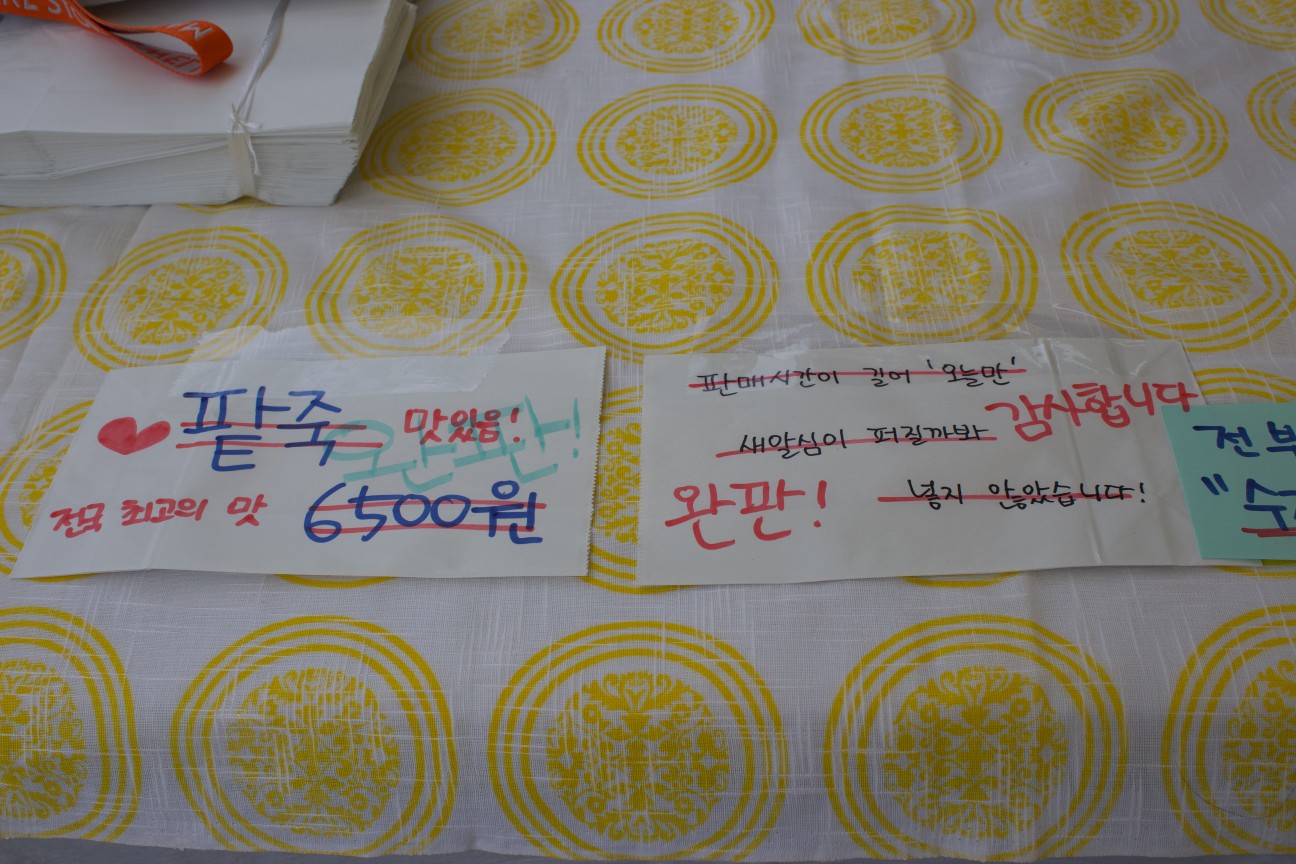 팥죽 맛있음!
완판!
전국 최고의 맛 6500원
판매시간이 길어 '오늘만'
새알심이 퍼질까봐 감사합니다
완판! 넣지 않았습니다!
전부